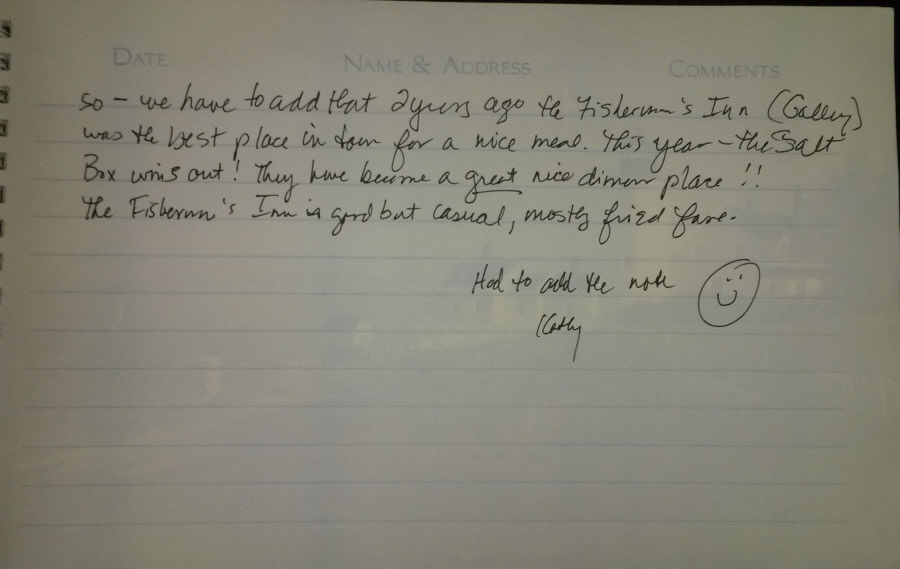 DATE NAME & ADDRESS COMMENTS
So - we have to add that 2 years ago the Fisherman's Inn (Galley)
was the best place in town for a nice meal. This year - the Salt
Box wins out! They have become a great nice dinner place!!
The Fisherman's Inn is good but casual, mostly fried fare.
Had to add the note
Kathy